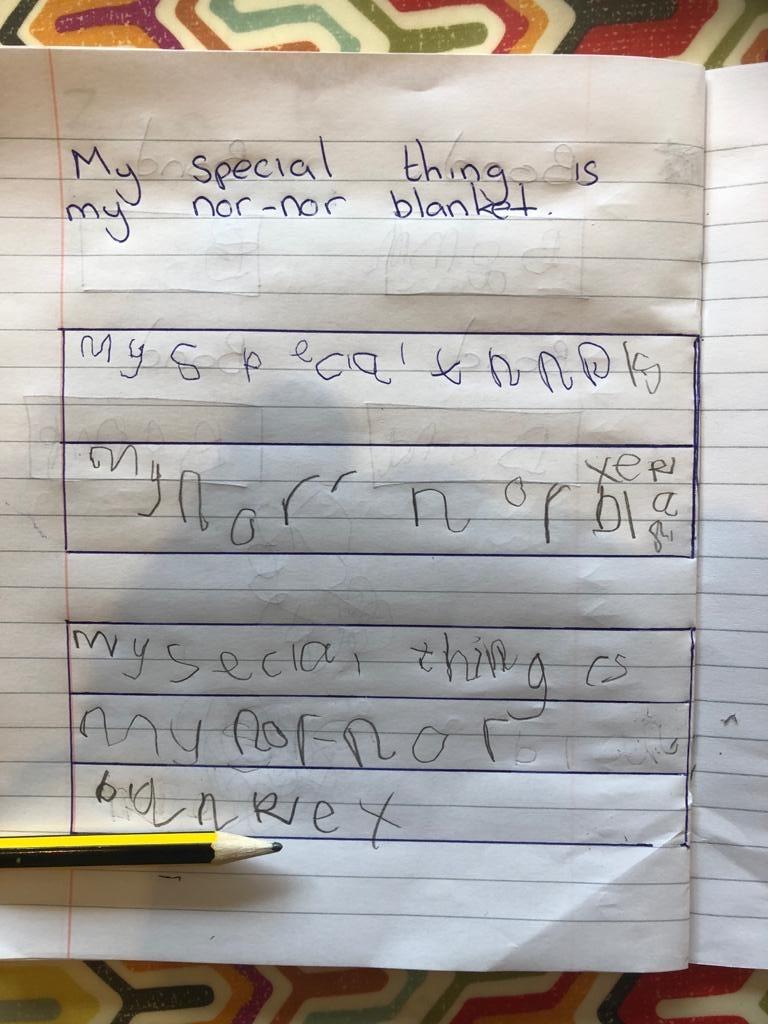 My special thing is
my nor-nor blanket.
My special
My norr nor bla
My secial thing is
my nor-nor
blankex